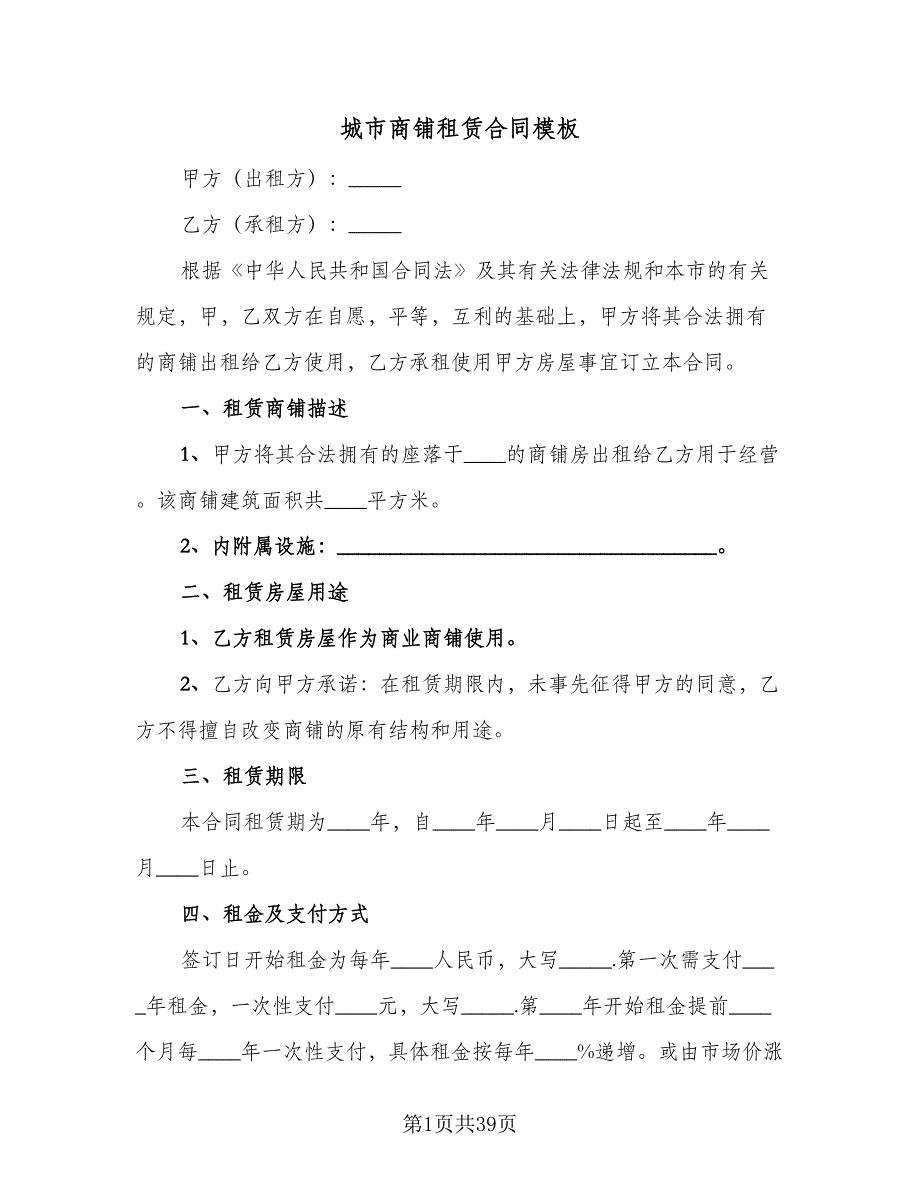 城市商铺租赁合同模板
甲方（出租方）：_____
乙方（承租方）：_____
根据《中华人民共和国合同法》及其有关法律法规和本市的有关
规定，甲，乙双方在自愿，平等，互利的基础上，甲方将其合法拥有
的商铺出租给乙方使用，乙方承租使用甲方房屋事宜订立本合同。
一、租赁商铺描述
1、甲方将其合法拥有的座落于____的商铺房出租给乙方用于经营
。该商铺建筑面积共____平方米。
2、内附属设施：____________________________________。
二、租赁房屋用途
1、乙方租赁房屋作为商业商铺使用。
2、乙方向甲方承诺：在租赁期限内，未事先征得甲方的同意，乙
方不得擅自改变商铺的原有结构和用途。
三、租赁期限
本合同租赁期为____年，自____年____月____日起至____年____
月____日止。
四、租金及支付方式
签订日开始租金为每年____人民币，大写_____.第一次需支付___
_年租金，一次性支付____元，大写_____.第____年开始租金提前____
个月每____年一次性支付，具体租金按每年____%递增。或由市场价涨
第1页共39页